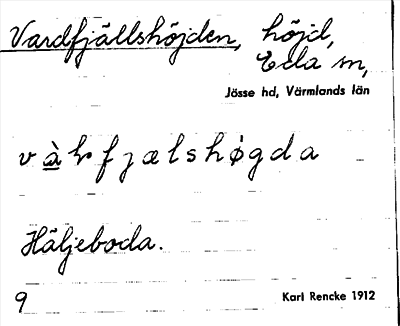 Vardfjällshöjden, höjd,
Eda sn,
Jösse hd, Värmlands län
v à l r f j æ l s h ø g d a
Häljeboda.
9
Karl Rencke 1912